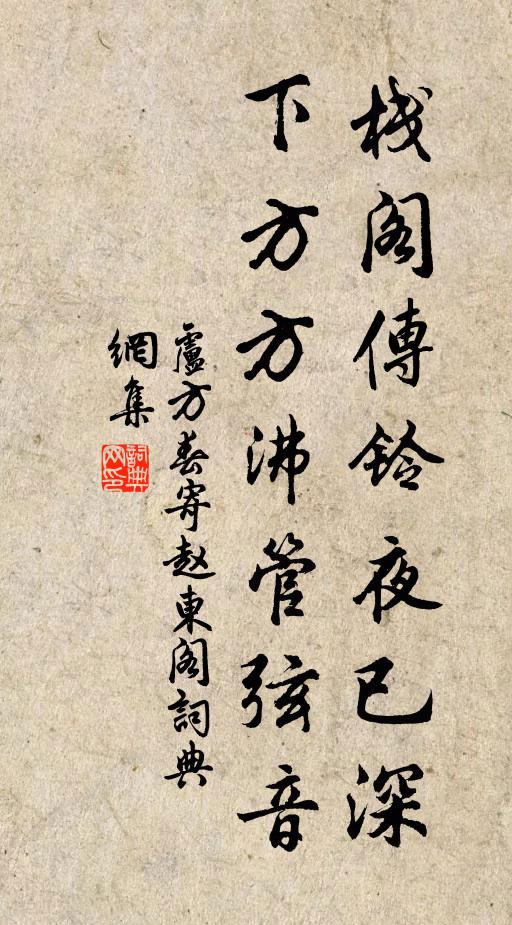 棧閣傳鈴夜已深
下方方沸管弦音
盧方春寄赵東阁詞典
網集
詞典網印